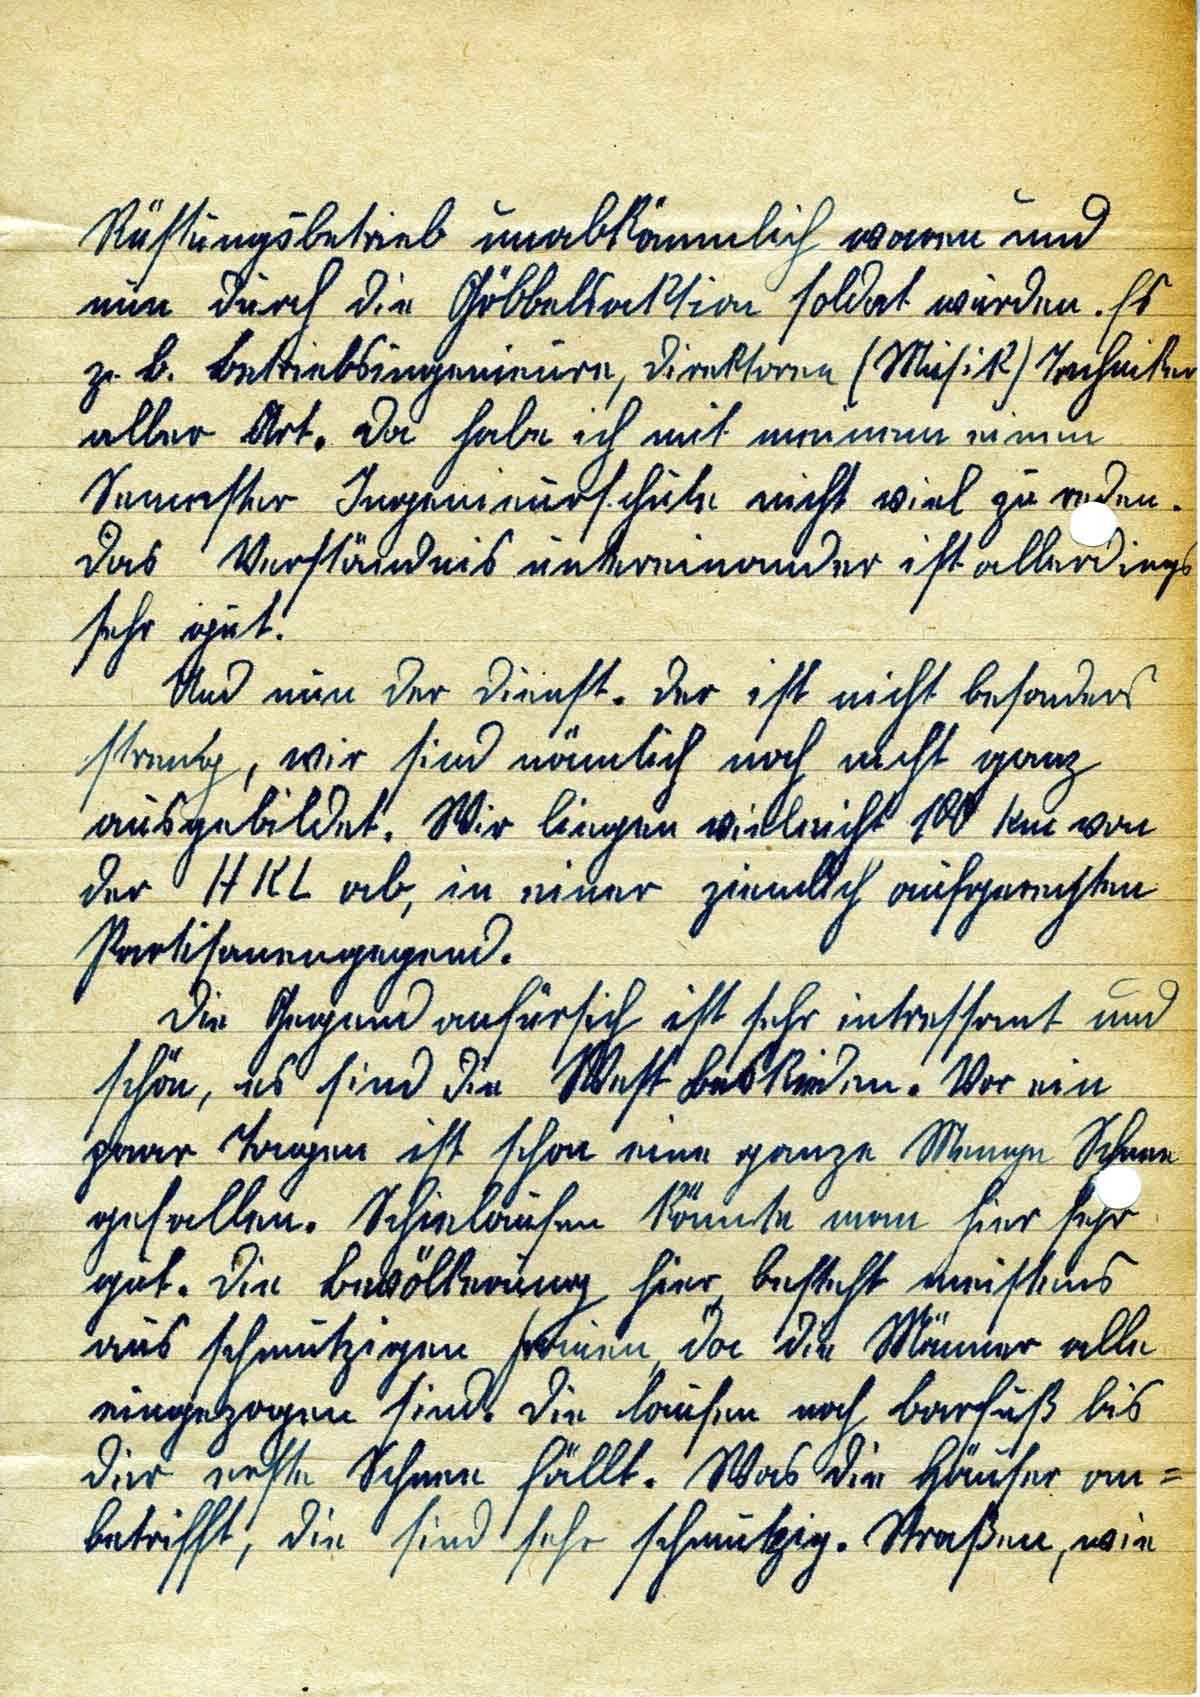 Rüstungsbetrieb unabkömmlich waren und
nun durch die Göbbelsaktion Soldat wurden. Es
z. b. Betriebsingenieure, Direktoren (Musik) Techniker
aller Art. Da habe ich mit meinem einen
Semester Ingenieurschule nicht viel zu reden.
Das Verständnis untereinander ist allerdings
sehr gut.
Und nun der Dienst. Der ist nicht besonders
streng, wir sind nämlich noch nicht ganz
ausgebildet. Wir liegen vielleicht 100 km von
der HKL ab, in einer ziemlich aufgeregten
Partisanengegend.
Die Gegend anfürsich ist sehr intressant und
schön, es sind die West Beskieden. Vor ein
paar Tagen ist schon eine ganze Menge Schnee
gefallen. Schielaufen könnte man hier sehr
gut. Die Bevölkerung hier, besteht meistens
aus schmutzigen Frauen, da die Männer alle
eingezogen sind. Die laufen noch barfuß bis
der erste Schnee fällt. Was die Häuser an=
betrifft, die sind sehr schmutzig. Straßen, wie